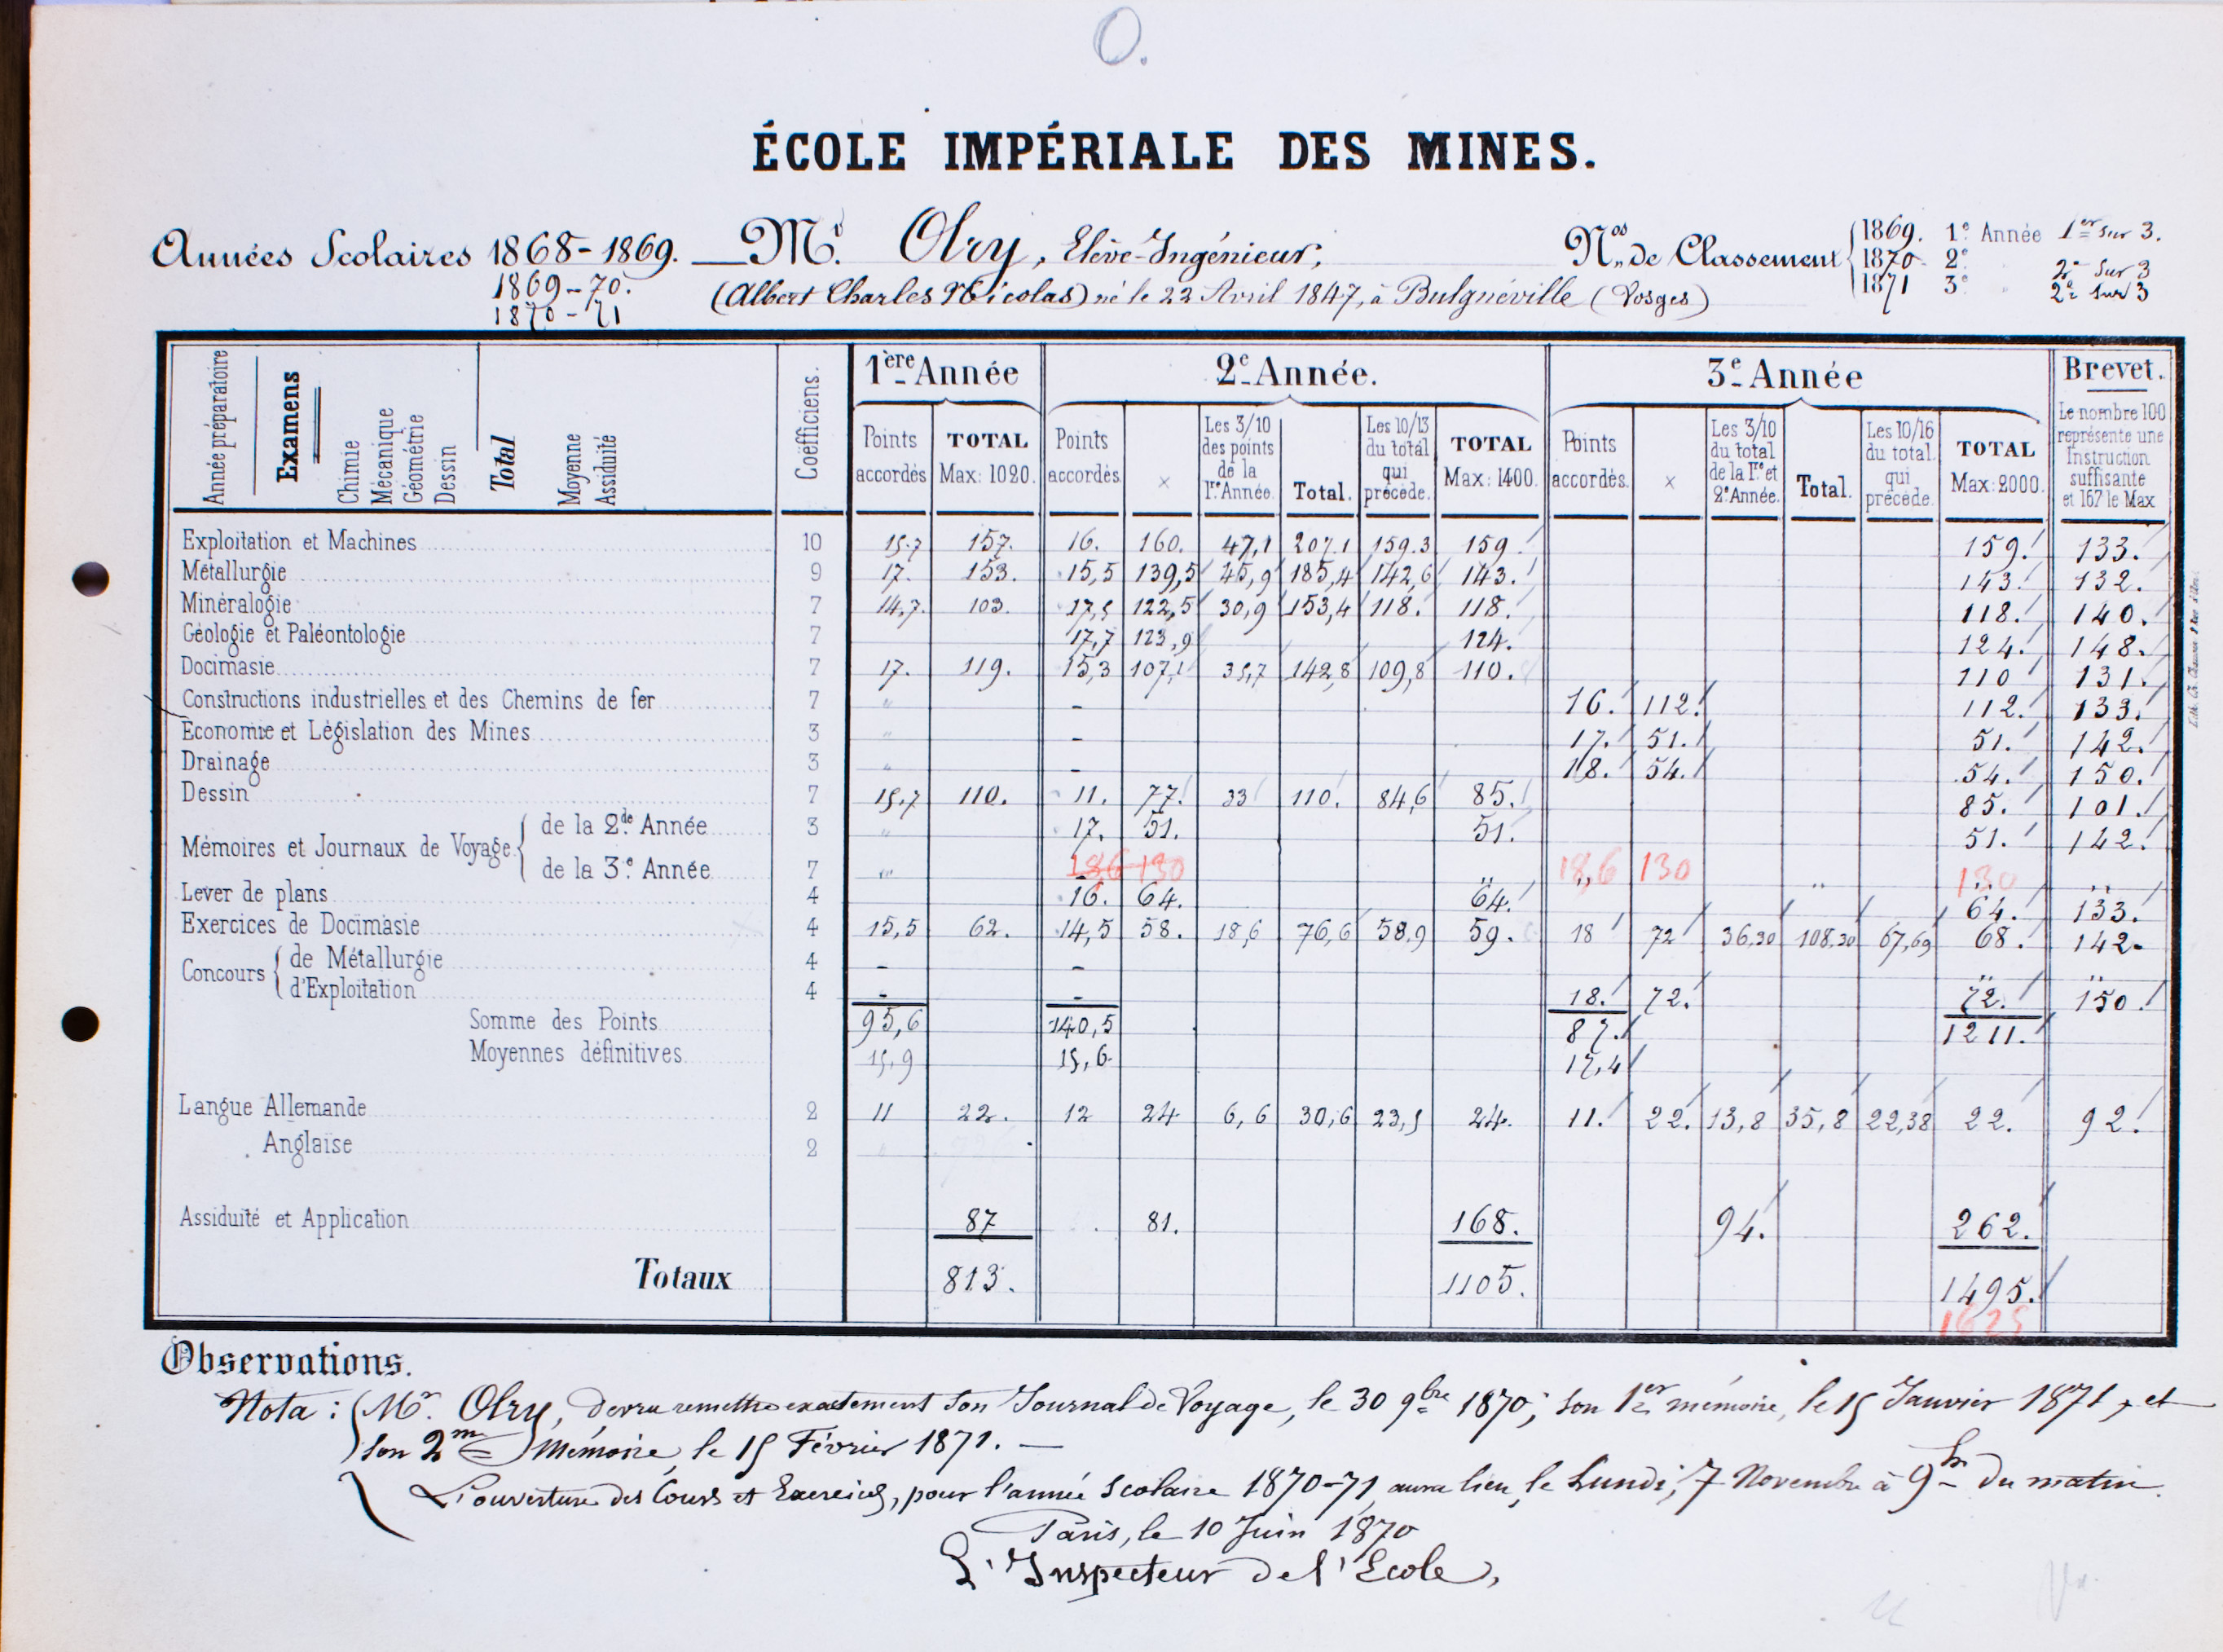 O.
ÉCOLE IMPÉRIALE DES MINES.
Années Scolaires 1868-1869. Mr. Olry, Elève-Ingénieur, Nos de Classement 1869. 1e Année 1er sur 3.
1869-70. (Albert Charles Nicolas) né le 22 Avril 1847, à Bulgnéville (Vosges) 1870 2e " 2e sur 3
1870-71 1871 3e " 2e sur 3
Année préparatoire Examens Chimie Mécanique Géométrie Dessin Total Moyenne Assiduité Coëfficiens. 1ère Année 2e Année. 3e Année Brevet.
Points accordés TOTAL Max: 1020. Points accordés. × Les 3/10 des points de la 1re Année. Total. Les 10/13 du total qui précède. TOTAL Max: 1400. Points accordés. × Les 3/10 du total de la 1re et 2e Année. Total. Les 10/16 du total qui précède. TOTAL Max: 2000. Le nombre 100 représente une Instruction suffisante et 167 le Max
Exploitation et Machines 10 15.7 157. 16. 160. 47,1 207.1 159.3 159. 159. 133.
Métallurgie 9 17. 153. 15,5 139,5 45,9 185,4 142,6 143. 143. 132.
Minéralogie 7 14,7. 103. 17,5 122,5 30,9 153,4 118. 118. 118. 140.
Géologie et Paléontologie 7 17,7 123,9 124. 124. 148.
Docimasie 7 17. 119. 15,3 107,1 35,7 142,8 109,8 110. 110 131.
Constructions industrielles et des Chemins de fer 7 " - 16. 112. 112. 133.
Economie et Législation des Mines 3 " - 17. 51. 51. 142.
Drainage 3 " - 18. 54. 54. 150.
Dessin 7 15,7 110. 11. 77. 33 110. 84,6 85. 85. 101.
Mémoires et Journaux de Voyage de la 2de Année 3 " 17. 51. 51. 51. 142.
de la 3e Année 7 " 18,6 130 " 18,6 130 " 130 "
Lever de plans 4 16. 64. 64. 64. 133.
Exercices de Docimasie 4 15,5 62. 14,5 58. 18,6 76,6 58,9 59. 18 72 36,30 108,30 67,69 68. 142.
Concours de Métallurgie 4 - - " "
d'Exploitation 4 - - 18. 72. 72. 150.
Somme des Points 95,6 140,5 87. 1211.
Moyennes définitives 15,9 15,6 17,4
Langue Allemande 2 11 22. 12 24 6,6 30,6 23,5 24. 11. 22. 13,8 35,8 22,38 22. 92.
Anglaise 2 "
Assiduité et Application 87 81. 168. 94. 262.
Totaux 813. 1105. 1495.
1625
Observations.
Nota : Mr. Olry, devra remettre exactement son Journal de Voyage, le 30 9bre 1870; son 1er mémoire, le 15 Janvier 1871, et
son 2me Mémoire, le 15 Février 1871. —
L'ouverture des Cours et Exercices, pour l'année scolaire 1870-71, aura lieu, le Lundi, 7 Novembre à 9h du matin.
Paris, le 10 Juin 1870
L'Inspecteur de l'Ecole,